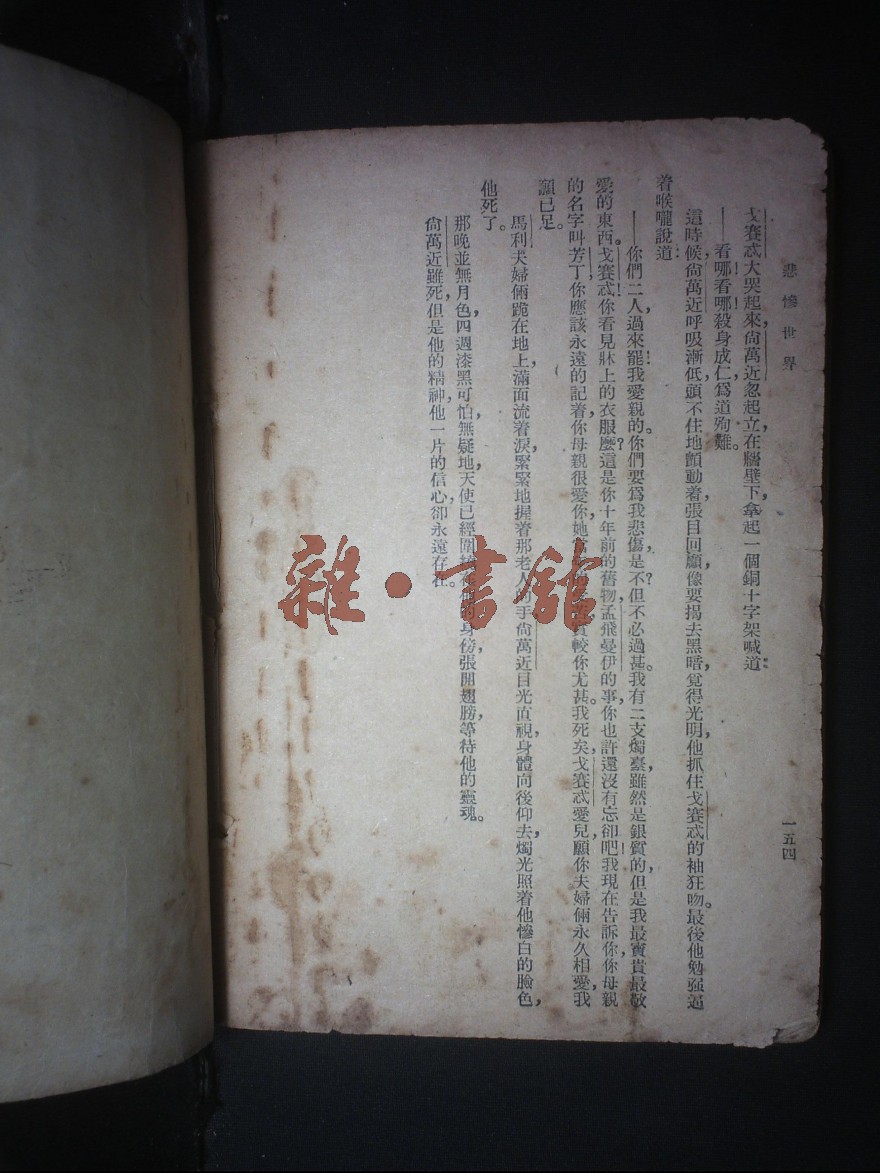 悲慘世界
一五四
戈賽忒大哭起來，尙萬近忽起立在牆壁下，拿起一個銅十字架喊道：
——看哪！看哪！殺身成仁，爲道殉難。
這時候，尙萬近呼吸漸低，頭不住地顫動着，張目回顧，像要揭去黑暗，覓得光明，他抓住戈賽忒的袖狂吻。最後他勉强逼
着喉嚨說道：
——你們二人，過來罷！我愛親的。你們要爲我悲傷，是不？但不必過甚。我有二支燭臺，雖然是銀質的，但是我最寶貴最敬
愛的東西。戈賽忒！你看見牀上的衣服麼？這是你十年前的舊物，孟飛曼伊的事，你也許還沒有忘卻吧！我現在告訴你，你母親
的名字叫芳丁，你應該永遠的記着，你母親很愛你，她較你尤甚。我死矣，戈賽忒愛兒，願你夫婦倆永久相愛，我
願已足。
馬利夫婦倆跪在地上，滿面流着淚，緊緊地握着那老人的手，尙萬近目光直視，身體向後仰去，燭光照着他慘白的臉色，
他死了。
那晚並無月色，四週漆黑可怕，無疑地，天使已經圍身傍，張開翅膀，等待他的靈魂。
尙萬近雖死，但是他的精神，他一片的信心，卻永遠存在。
雜·書館